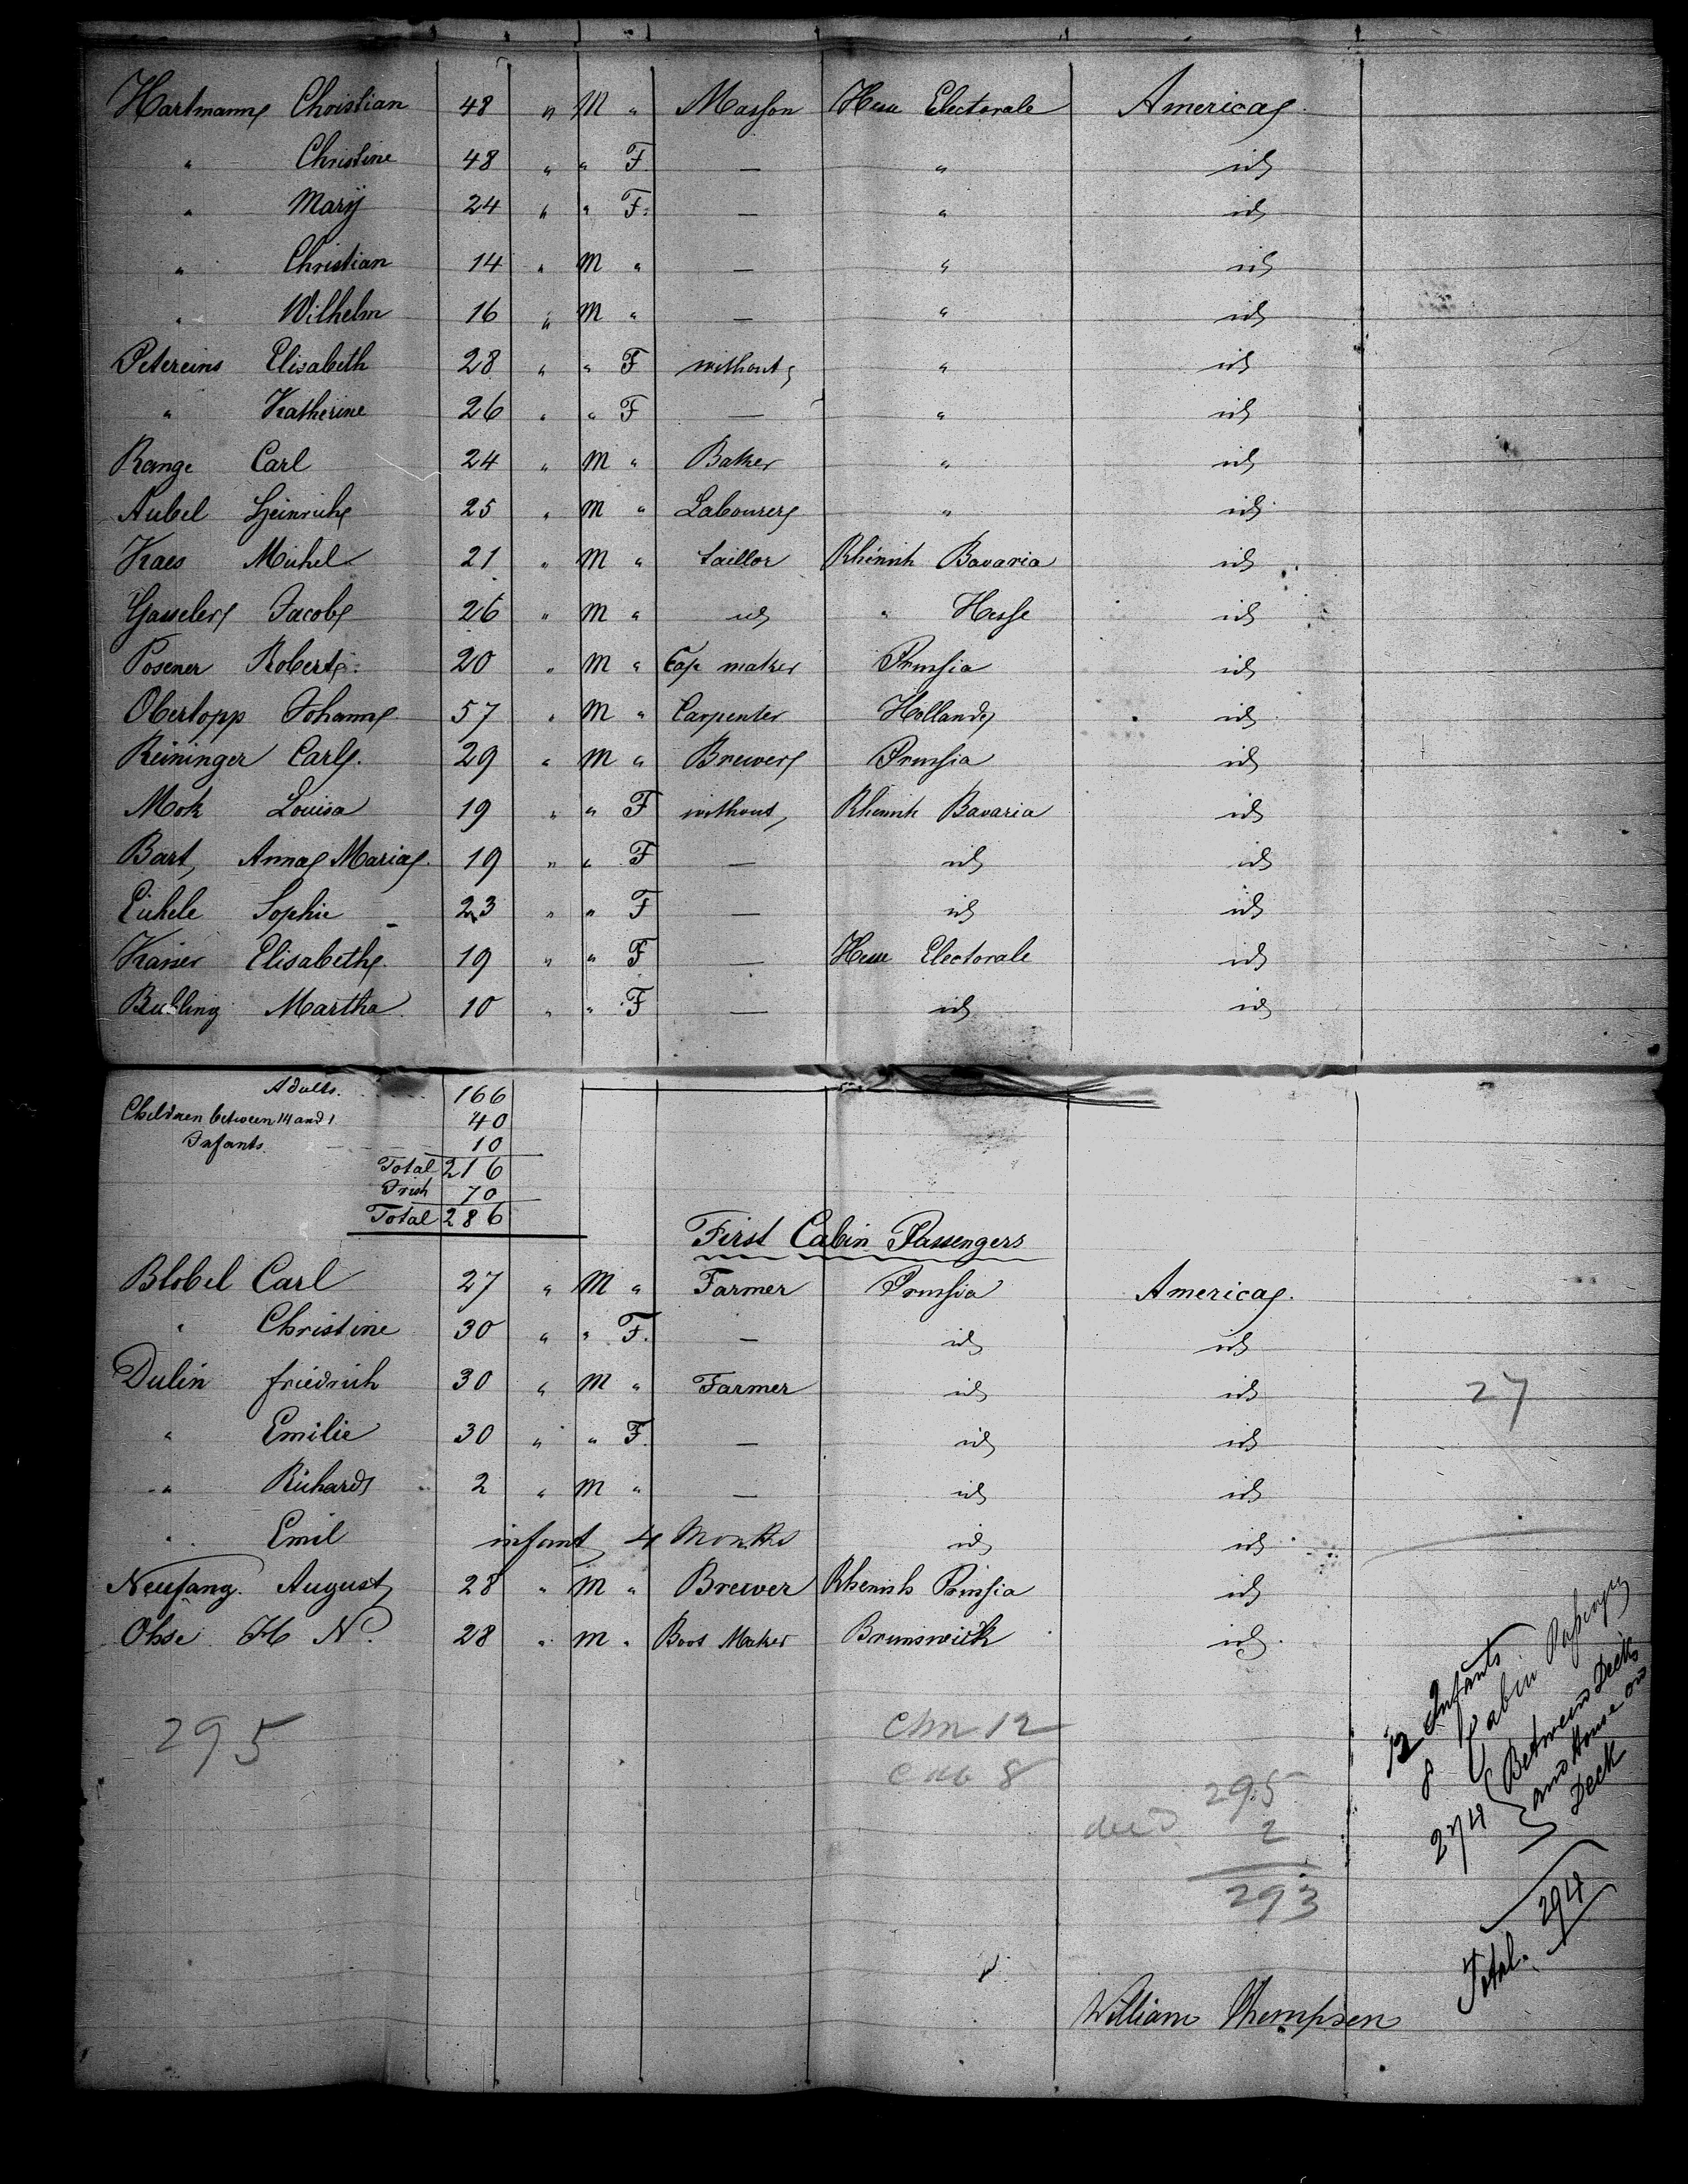 Hartmann Christian 48 " M " Masson Hesse Electorale America
" Christine 48 " " F. — " id
" Mary 24 " " F. — " id
" Christian 14 " M " — " id
" Wilhelm 16 " M " — " id
Petereins Elisabeth 28 " " F without " id
" Katherine 26 " " F — " id
Range Carl 24 " M " Baker " id
Aubel Heinrich 25 " M " Labourer " id
Kaes Michel 21 " M " taillor Rhenish Bavaria id
Gasseler Jacob 26 " M " id " Hesse id
Posener Robert 20 " M " Cap maker Prussia id
Obertopp Johann 57 " M " Carpenter Holland id
Reininger Carl 29 " M " Brewer Prussia id
Mok Louisa 19 " " F without Rhenish Bavaria id
Bart, Anna Maria 19 " " F — id id
Eichele Sophie 23 " " F — id id
Kaiser Elisabeth 19 " " F — Hesse Electorale id
Martha 10 " " F — id id
Adults. 166
Children between 14 and 1 40
Infants 10
Total 216
Irish 70
Total 286
First Cabin Passengers
Blobel Carl 27 " M " Farmer Prussia America
" Christine 30 " " F. — id id
Dulin friedrich 30 " M " Farmer id id
27
" Emilie 30 " " F. — id id
" Richard 2 " M " — id id
" Emil infant 4 Months id id
Neufang August 28 " M " Brewer Rhenish Prussia id
Ohse H N. 28 " M " Boot Maker Brunswick id
12 Infants
8 Cabin Passengers
274 { Between Decks
and House on
Deck
Total. 294
295
Chn 12
Cab 8
295
died 2
293
William Thompson